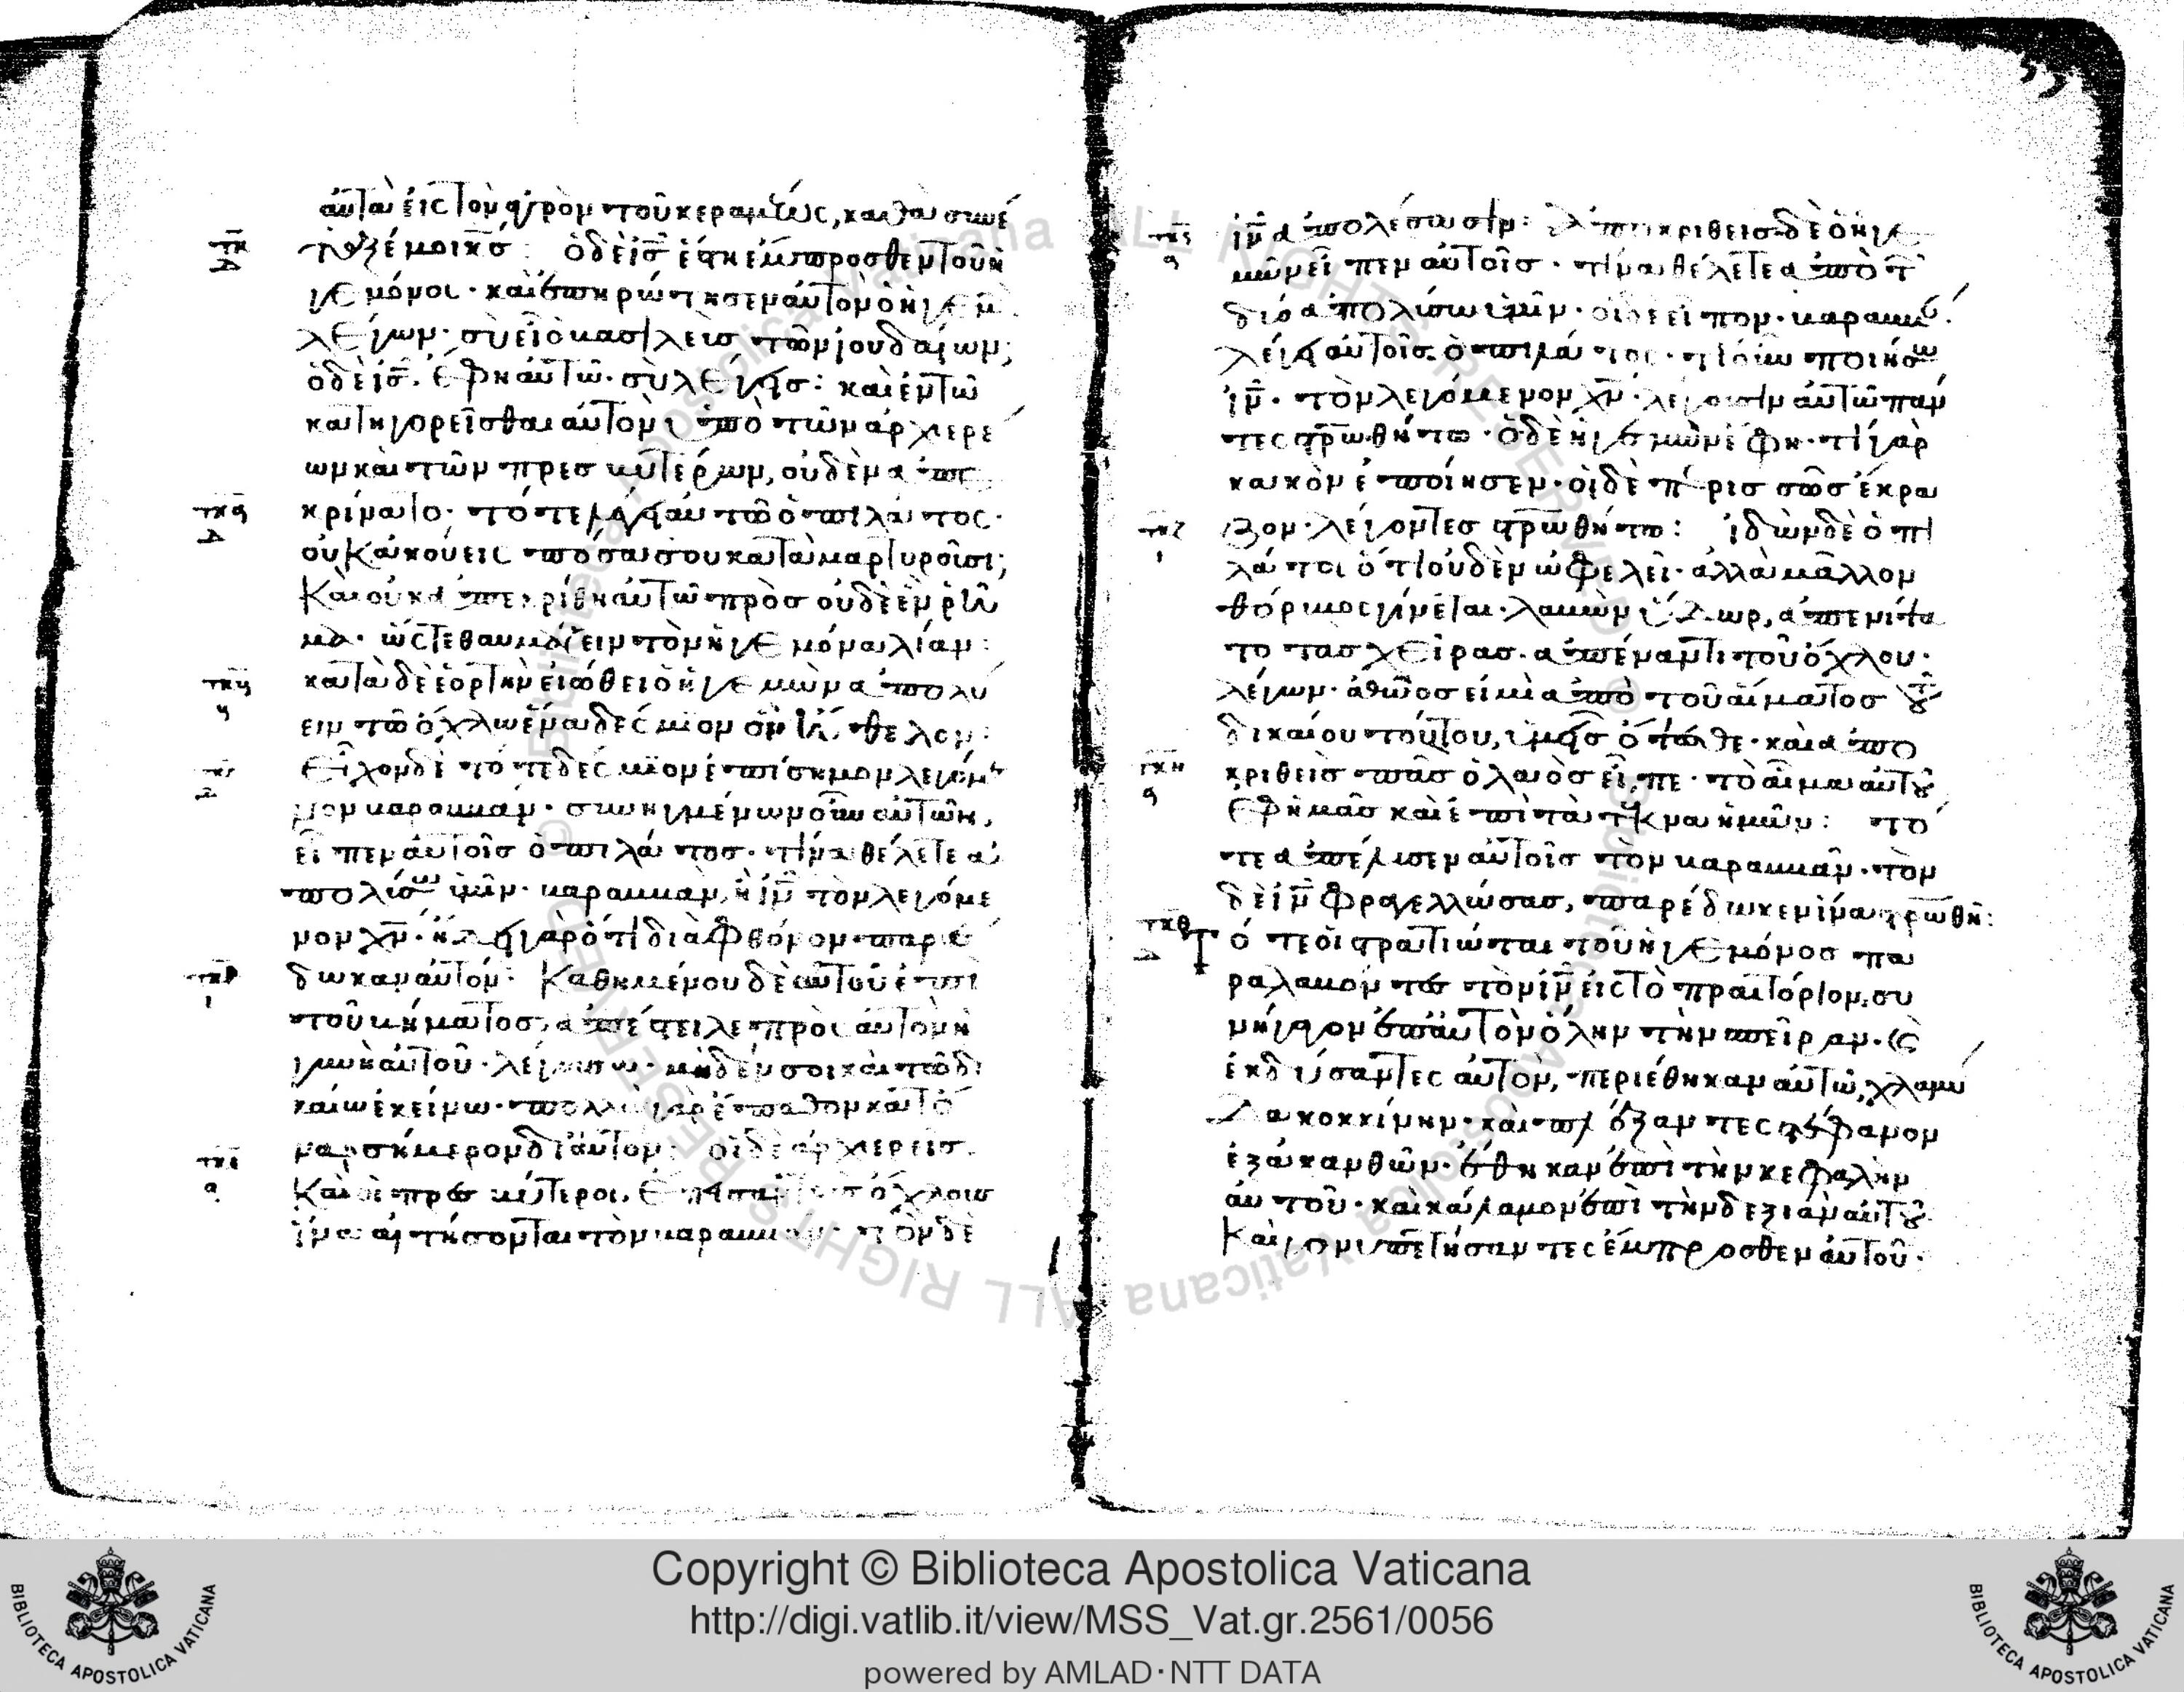 αὐτὰ εἰς τὸν ἀγρὸν τοῦ κεραμέως, καθὰ συνέ
ταξέ μοι κς: ὁ δὲ ις ἔστη ἔμπροσθεν τοῦ ἡ
γεμόνος· καὶ ἐπηρώτησεν αὐτὸν ὁ ἡγεμὼ
λέγων· σὺ εἶ ὁ βασιλεὺς τῶν ἰουδαίων;
ὁ δὲ ις. ἔφη αὐτῶ· σὺ λέγεις: καὶ ἐν τῶ
κατηγορεῖσθαι αὐτὸν ὑπὸ τῶν ἀρχιερέ
ων καὶ τῶν πρεσβυτέρων, οὐδὲν ἀπε
κρίνατο· τότε λέγει αὐτῶ ὁ πιλάτος·
οὐκ ἀκούεις πόσα σου καταμαρτυροῦσι;
καὶ οὐκ ἀπεκρίθη αὐτῶ πρὸς οὐδὲ ἓν ῥῆ
μα· ὥστε θαυμάζειν τὸν ἡγεμόνα λίαν:
κατὰ δὲ ἑορτὴν εἰώθει ὁ ἡγεμὼν ἀπολύ
ειν τῶ ὄχλω ἕνα δέσμιον ὃν ἤθελον:
εἶχον δὲ τότε δέσμιον ἐπίσημον λεγόμε
νον βαραββάν· συνηγμένων οὖν αὐτῶν,
εἶπεν αὐτοῖς ὁ πιλάτος· τίνα θέλετε ἀ
πολύσω ὑμῖν· βαραββάν, ἢ ιν τὸν λεγόμε
νον χν· ἤδει γὰρ ὅτι διὰ φθόνον παρέ
δωκαν αὐτόν: Καθημένου δὲ αὐτοῦ ἐπὶ
τοῦ βήματος, ἀπέστειλε πρὸς αὐτὸν ἡ
γυνὴ αὐτοῦ· λέγουσα· μηδέν σοι καὶ τῶ δι
καίω ἐκείνω· πολλὰ γὰρ ἔπαθον κατό
ναρ σήμερον δι αὐτόν: οἱ δὲ ἀρχιερεῖς
Καὶ οἱ πρεσβύτεροι, ἔπεισαν τοὺς ὄχλους
ἵνα αἰτήσονται τὸν βαραββάν· τὸν δὲ
ιν ἀπολέσωσιν: ἀποκριθεὶς δὲ ὁ ἡγε
μὼν εἶπεν αὐτοῖς· τίνα θέλετε ἀπὸ τ
δύο ἀπολύσω ὑμῖν· οἱ δὲ εἶπον· βαραββάν.
λέγει αὐτοῖς ὁ πιλάτος· τί οὖν ποιήσω
ιν· τὸν λεγόμενον χν· λέγουσιν αὐτῶ πάν
τες στρωθήτω· ὁ δὲ ἡγεμὼν ἔφη· τί γὰρ
κακὸν ἐποίησεν· οἱ δὲ περισσῶς ἔκρα
ζον· λέγοντες στρωθήτω: ἰδὼν δὲ ὁ πι
λάτος ὅτι οὐδὲν ὠφελεῖ· ἀλλὰ μᾶλλον
θόρυβος γίνεται· λαβὼν ὕδωρ, ἀπενίψα
το τὰς χεῖρας· ἀπέναντι τοῦ ὄχλου·
λέγων· ἀθῶος εἰμὶ ἀπὸ τοῦ αἵματος τοῦ
δικαίου τούτου, ὑμεῖς ὄψεσθε· καὶ ἀπο
κριθεὶς πᾶς ὁ λαὸς εἶπε· τὸ αἷμα αὐτοῦ
ἐφ ἡμᾶς καὶ ἐπὶ τὰ τέκνα ἡμῶν: τό
τε ἀπέλυσεν αὐτοῖς τὸν βαραββάν· τὸν
δὲ ιν φραγελλώσας, παρέδωκεν ἵνα στρωθῆ:
Τότε οἱ στρατιῶται τοῦ ἡγεμόνος πα
ραλαβόντες τὸν ιν εἰς τὸ πραιτόριον, συ
νήγαγον ἐπ αὐτὸν ὅλην τὴν σπεῖραν· καὶ
ἐκδύσαντες αὐτόν, περιέθηκαν αὐτῶ, χλαμύ
δα κοκκίνην· καὶ πλέξαντες στέφανον
ἐξ ἀκανθῶν· ἔθηκαν ἐπὶ τὴν κεφαλὴν
αὐτοῦ· καὶ κάλαμον ἐπὶ τὴν δεξιὰν αὐτοῦ
Καὶ γονυπετήσαντες ἔμπροσθεν αὐτοῦ·
Copyright © Biblioteca Apostolica Vaticana
http://digi.vatlib.it/view/MSS_Vat.gr.2561/0056
powered by AMLAD·NTT DATA
BIBLIOTECA APOSTOLICA VATICANA
BIBLIOTECA APOSTOLICA VATICANA